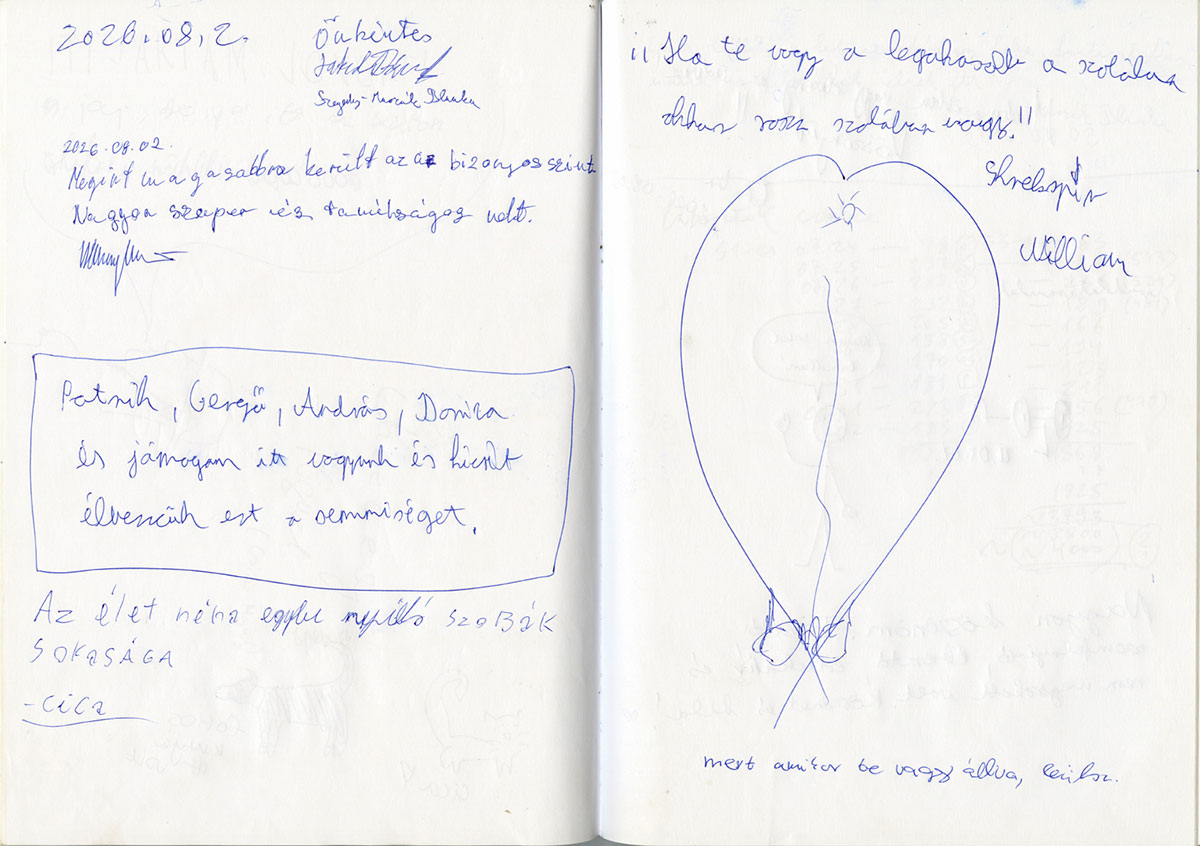 2026.08.2.
Önkéntes
Szegedy-Marcák Blanka
2026.08.02.
Megint magasabbra került az a bizonyos szint
Nagyon szuper és tanulságos volt.
Patrik, Gergő, András, Dorina
és jómagam itt vagyunk és kicsit
élvezzük ezt a semmiséget.
Az élet néha egybe nyíló SZOBÁK
SOKASÁGA
-cica
Ha te vagy a legokosabb a szobában
akkor rossz szobában vagy!!
William
mert amikor be vagy állva, leülsz.